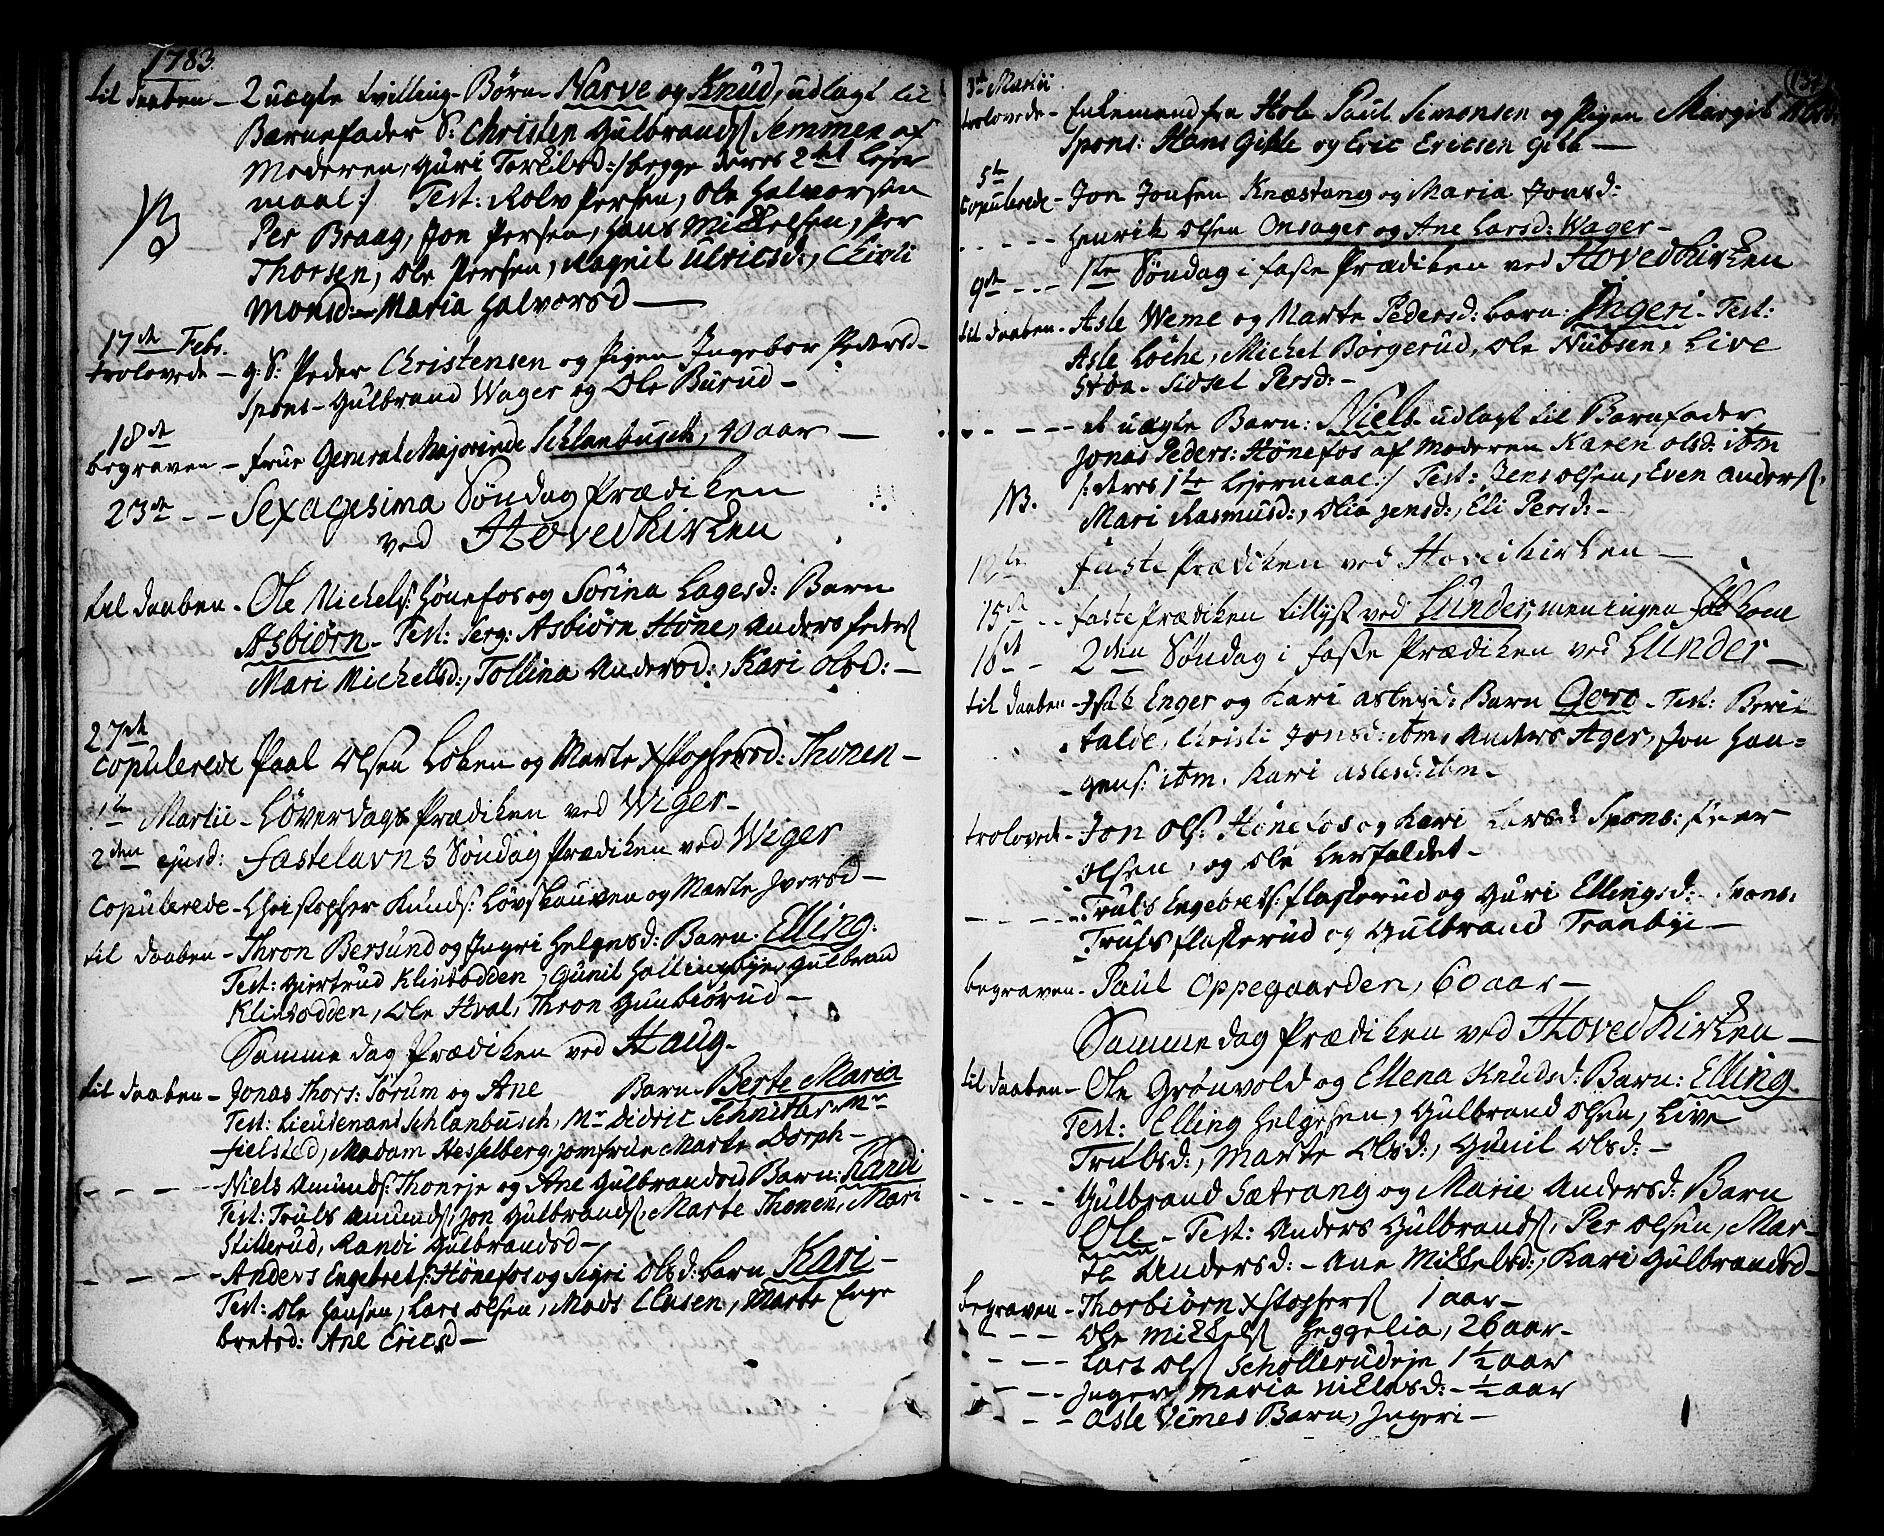 1783.
til daaben – 2 uægte tvilling-Børn Narve og Knud, udlagt til
Barnefader S: Christen Gulbrands Semmen af
Moderen, Guri Torkilsd: /: begge deres 2det Lejer
maal :/ Test: Rolv Persen, Ole Halvorsen
NB
Per Braag, Jon Persen, Hans Mickelsen, Per
Thorsen, Ole Persen, Ragnil Ulricsd:, Chirsti
Monsd: – Maria Halvorsd –
17de Febr.
trolovede – g: S: Peder Christensen og Pigen Ingebor Pedersd –
Spons – Gulbrand Wager og Ole Burud –
18de
begraven – Frue General Majorinde Schlanbusch, 40 aar –
23de – – Sexagesima Søndag Prædiken
ved Hovedkirken
til daaben – Ole Michels: Hønefos og Sörina Lagesd: Barn
Asbiørn – Test: Serg: Asbiørn Høne, Anders Peders
Mari Michelsd:, Tollina Andersd:, Kari Olsd: –
27de
Copulerede Paal Olsen Loken og Marte Xstophersd: Thonen –
1te Martii – Løverdags Prædiken ved Wiger –
2den ejusd: Fastelavns Søndag Prædiken ved Wiger
Copulerede – Christopher Knuds: Løvskouven og Marte Iversd –
til daaben – Thron Bersund og Ingri Helgesd: Barn: Elling:
Test: Giertrud Klinkodden, Gunil Hallingbye, Gulbrand
Klinkodden, Ole Hval, Thron Gunbiørud –
Samme dag Prædiken ved Haug –
til daaben – Jonas Thors: Sørum og Ane Barn – Berte Maria
Test: Lieutenant Schlanbusch, Mr Didric Schnitler Mr
Fielsted, Madam Hesselberg, Jomfrue Marte Dorph –
– – – – Niels Amunds: Thoneje og Ane Gulbrandsd Barn: Randi
Test: Truls Amunds, Jon Gulbrands, Marte Thonen, Mari
Stillerud, Randi Gulbrandsd –
– – – – Anders Engebrets: Hønefos og Sigri Olsd: barn Kari –
Test: Ole Hansen, Lars Olsen, Mads Clasen, Marte Enge
bretsd: Ane Ericsd –
3de Martii
trolovede – Enkemand fra Hole Paul Simensen og Pigen Margit
Spons: Hans Gihle og Eric Ericsen Gihle –
5te
Copulerede – Jon Jonsen Knæstang og Maria Jonsd:
– – – – – Henrik Olsen Onsager og Ane Larsd: Wager –
9de – – – 1te Søndag i faste Prædiken ved Hovedkirken
til daaben – Asle Weme og Marte Pedersd: barn: Ingeri – Test:
Asle Löche, Michel Borgerud, Ole Nubsen, Live
Støa – Sidsel Persd: –
– – – – – et uægte Barn: Niels – udlagt til Barnfader
Jonas Peders: Hönefos af Moderen Karen Olsd: ibm
NB. /: deres 1te Lejermaal :/ Test: Jens Olsen, Even Anders,
Mari Rasmusd:, Olia Jensd:, Eli Persd: –
12te Faste Prædiken ved Hovedkirken –
15de – – Faste Prædiken tillyst ved Lunder, men ingen folk kom
16de – 2den Søndag i faste Prædiken ved Lunder –
til daaben – Isak Enger og Kari Aslesd: Barn Goro – Test: Berit
Christi Jonsd: ibm, Anders Ager, Jon Hau=
gens: ibm. Kari Aslesd: ibm –
trolovede – Jon Ols: Hönefos og Kari Larsd: Spons: Peer
Olsen, og Ole Lerfaldet –
– – – – – Truls Engebrets: Flaskerud og Guri Ellingsd: – Spons:
Truls Flaskerud og Gulbrand Tranbye –
begraven – Paul Oppegaarden, 60 aar –
Samme dag Prædiken ved Hovedkirken –
til daaben – Ole Grönvold og Ellena Knudsd: Barn: Elling –
Test: Elling Helgesen, Gulbrand Olsen, Live
Trulsd:, Marte Olsd:, Gunil Olsd: –
– – – – Gulbrand Sætrang og Marie Andersd: Barn
Ole – Test: Anders Gulbrands, Per Olsen, Mar-
te Andersd: – Ane Mickelsd:, Kari Gulbrandsd –
begraven – Thorbiörn Xstophers 1 aar –
– – – – Ole Mickels Heggelia, 26 aar –
– – – – Lars Ols Schollerudeje 1 1/2 aar
– – – – Inger Maria Nielsd: – 1/2 aar
– – – – Asle Vimes Barn, Ingeri –